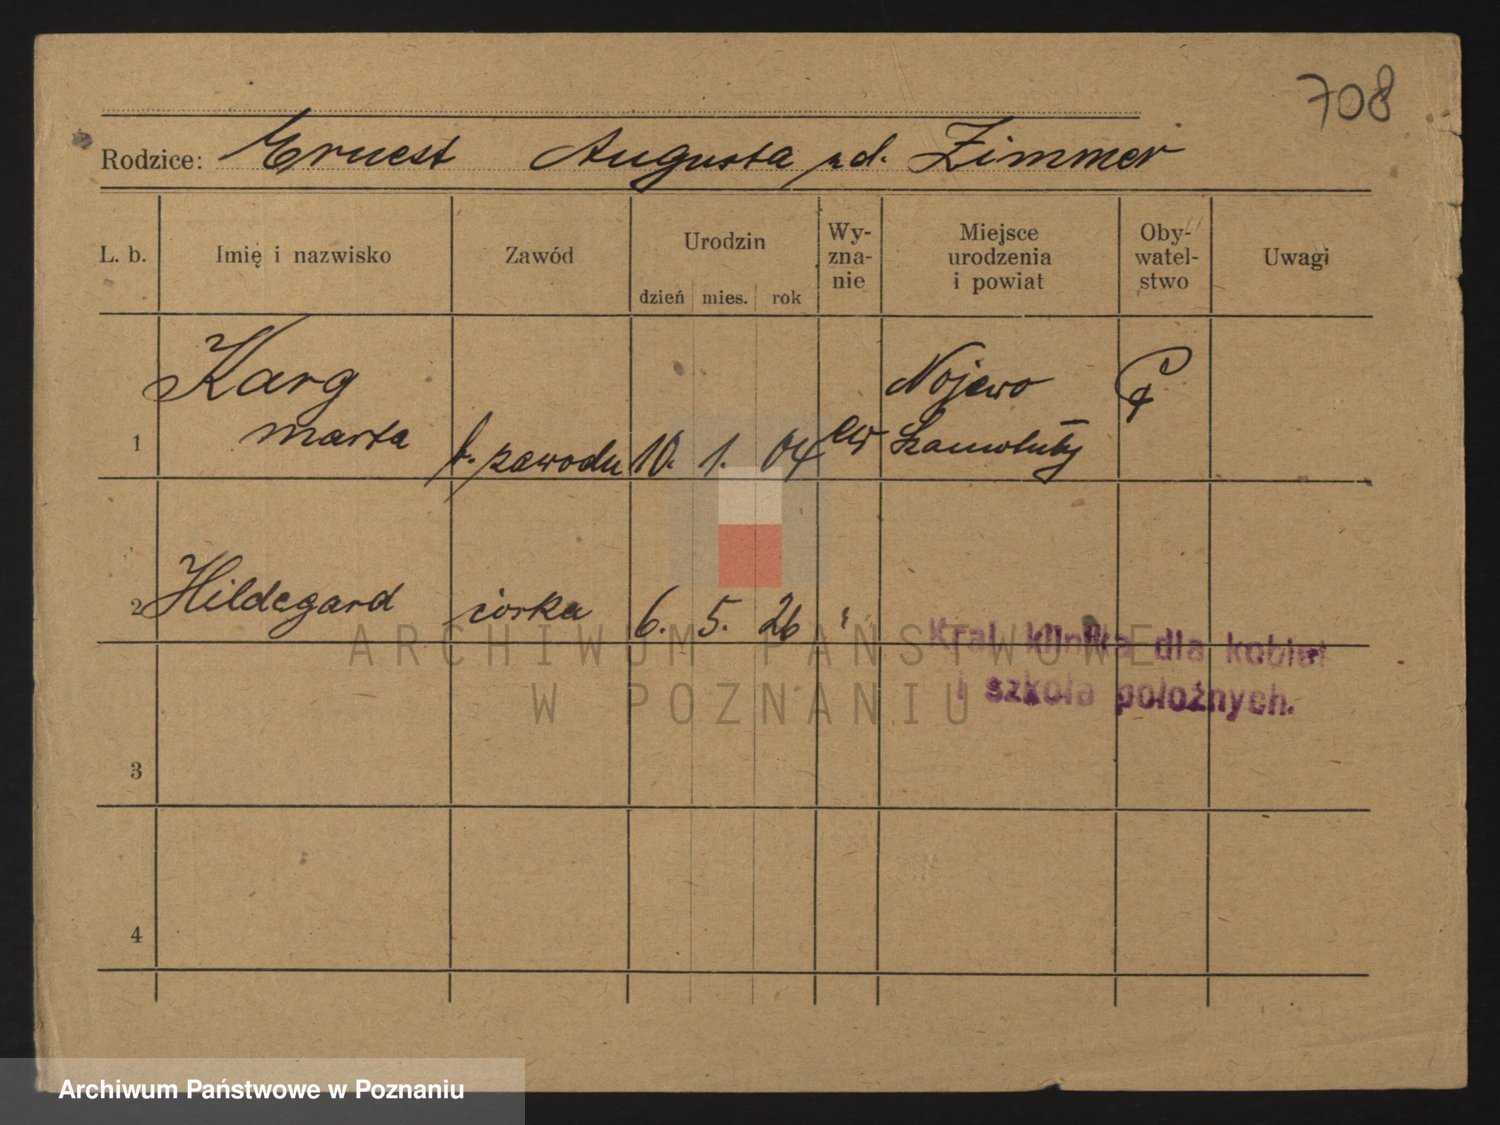 708
Rodzice: Ernest Augusta zd. Zimmer
L. b. Imię i nazwisko Zawód Urodzin Wy-zna-nie Miejsce urodzenia i powiat Oby-watel-stwo Uwagi
dzień mies. rok
Karg Nojewo P
1 Marta b. zawodu 10. 1. 04 ew Szamotuły
2 Hildegard córka 6. 5. 26 "
Kraj. klinika dla kobiet
i szkoła położnych.
3
4
ARCHIWUM PAŃSTWOWE
W POZNANIU
Archiwum Państwowe w Poznaniu